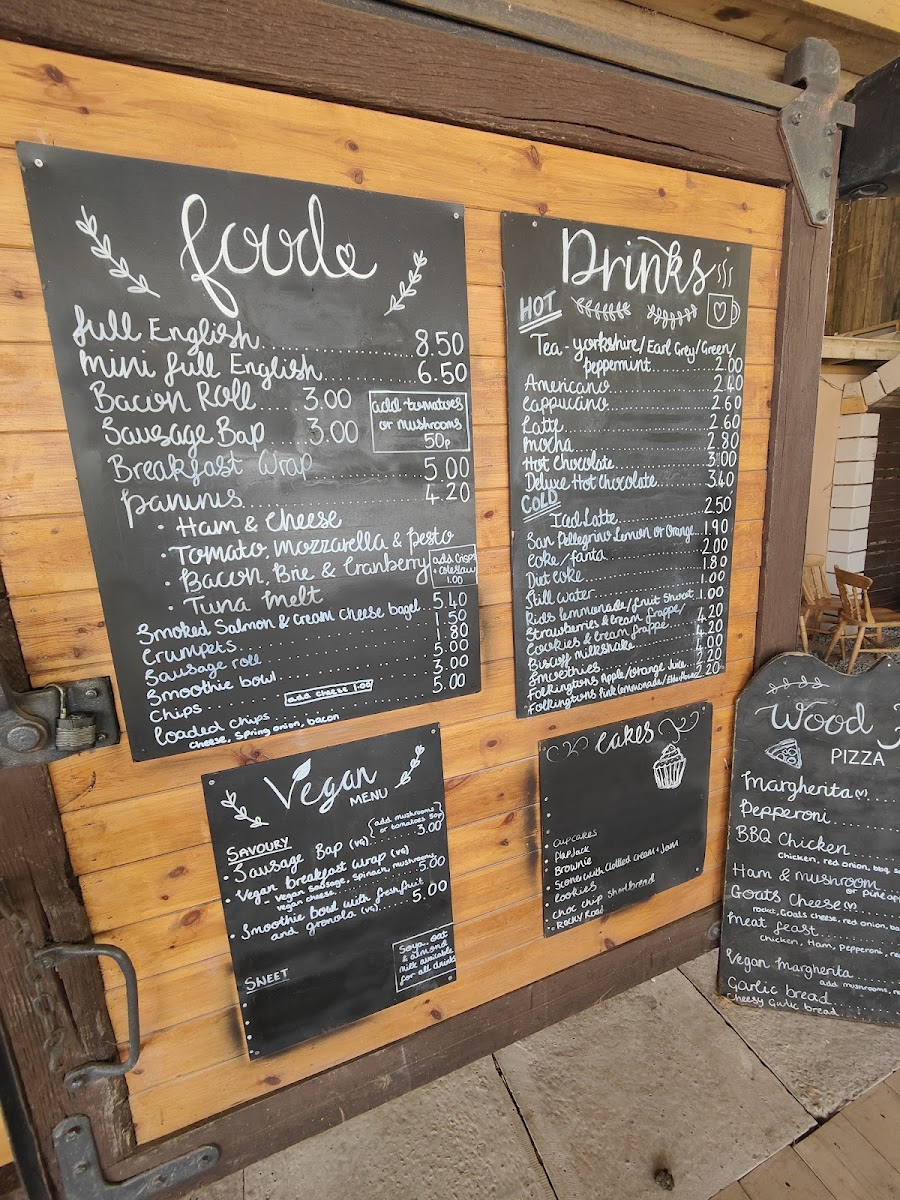 food
Full English 8.50
Mini Full English 6.50
Bacon Roll 3.00
Sausage Bap 3.00
add tomatoes
or mushrooms
50p
Breakfast Wrap 5.00
Paninis 4.20
• Ham & Cheese
• Tomato, Mozzarella & Pesto
• Bacon, Brie & Cranberry
• Tuna Melt
add crisps
+ coleslaw
1.00
Smoked Salmon & Cream Cheese bagel 5.40
Crumpets 1.50
Sausage roll 1.80
Smoothie bowl 5.00
Chips 3.00
add cheese 1.00
Loaded chips 5.00
cheese, spring onion, bacon
Drinks
HOT
Tea - Yorkshire/Earl Grey/Green/
peppermint 2.00
Americano 2.40
Cappucino 2.60
Latte 2.60
Mocha 2.80
Hot Chocolate 3.00
Deluxe Hot Chocolate 3.40
COLD
Iced Latte 2.50
San Pellegrino Lemon or Orange 1.90
Coke/fanta 2.00
Diet coke 1.80
Still water 1.00
Kids lemonade/fruit Shoot 1.00
Strawberries & Cream frappe/ 4.20
Cookies & Cream frappe 4.20
Biscoff milkshake
Smoothies 4.00
Folkingtons Apple/Orange Juice 2.20
Folkingtons Pink Lemonade/Elderflower 2.20
Vegan
MENU
SAVOURY
{add mushrooms}
{or tomatoes 50p}
• Sausage Bap (vg) 3.00
• Vegan breakfast wrap (vg)
vegan sausage, spinach, mushrooms,
vegan cheese 5.00
• Smoothie bowl with fresh fruit
and granola (vg) 5.00
SWEET
Soya, oat
& almond
milk available
for all drinks
Cakes
• Cupcakes
• Flapjack
• Brownie
• Scones with Clotted cream + Jam
• Cookies
• Choc chip shortbread
• Rocky Road
Wood
PIZZA
Margherita
Pepperoni
BBQ Chicken
chicken, red onion, bbq
Ham & mushroom
or pine
Goats Cheese
rocket, Goats cheese, red onion,
Meat feast
chicken, Ham, Pepperoni,
Vegan Margherita
add mushrooms,
Garlic bread
Cheesy Garlic bread